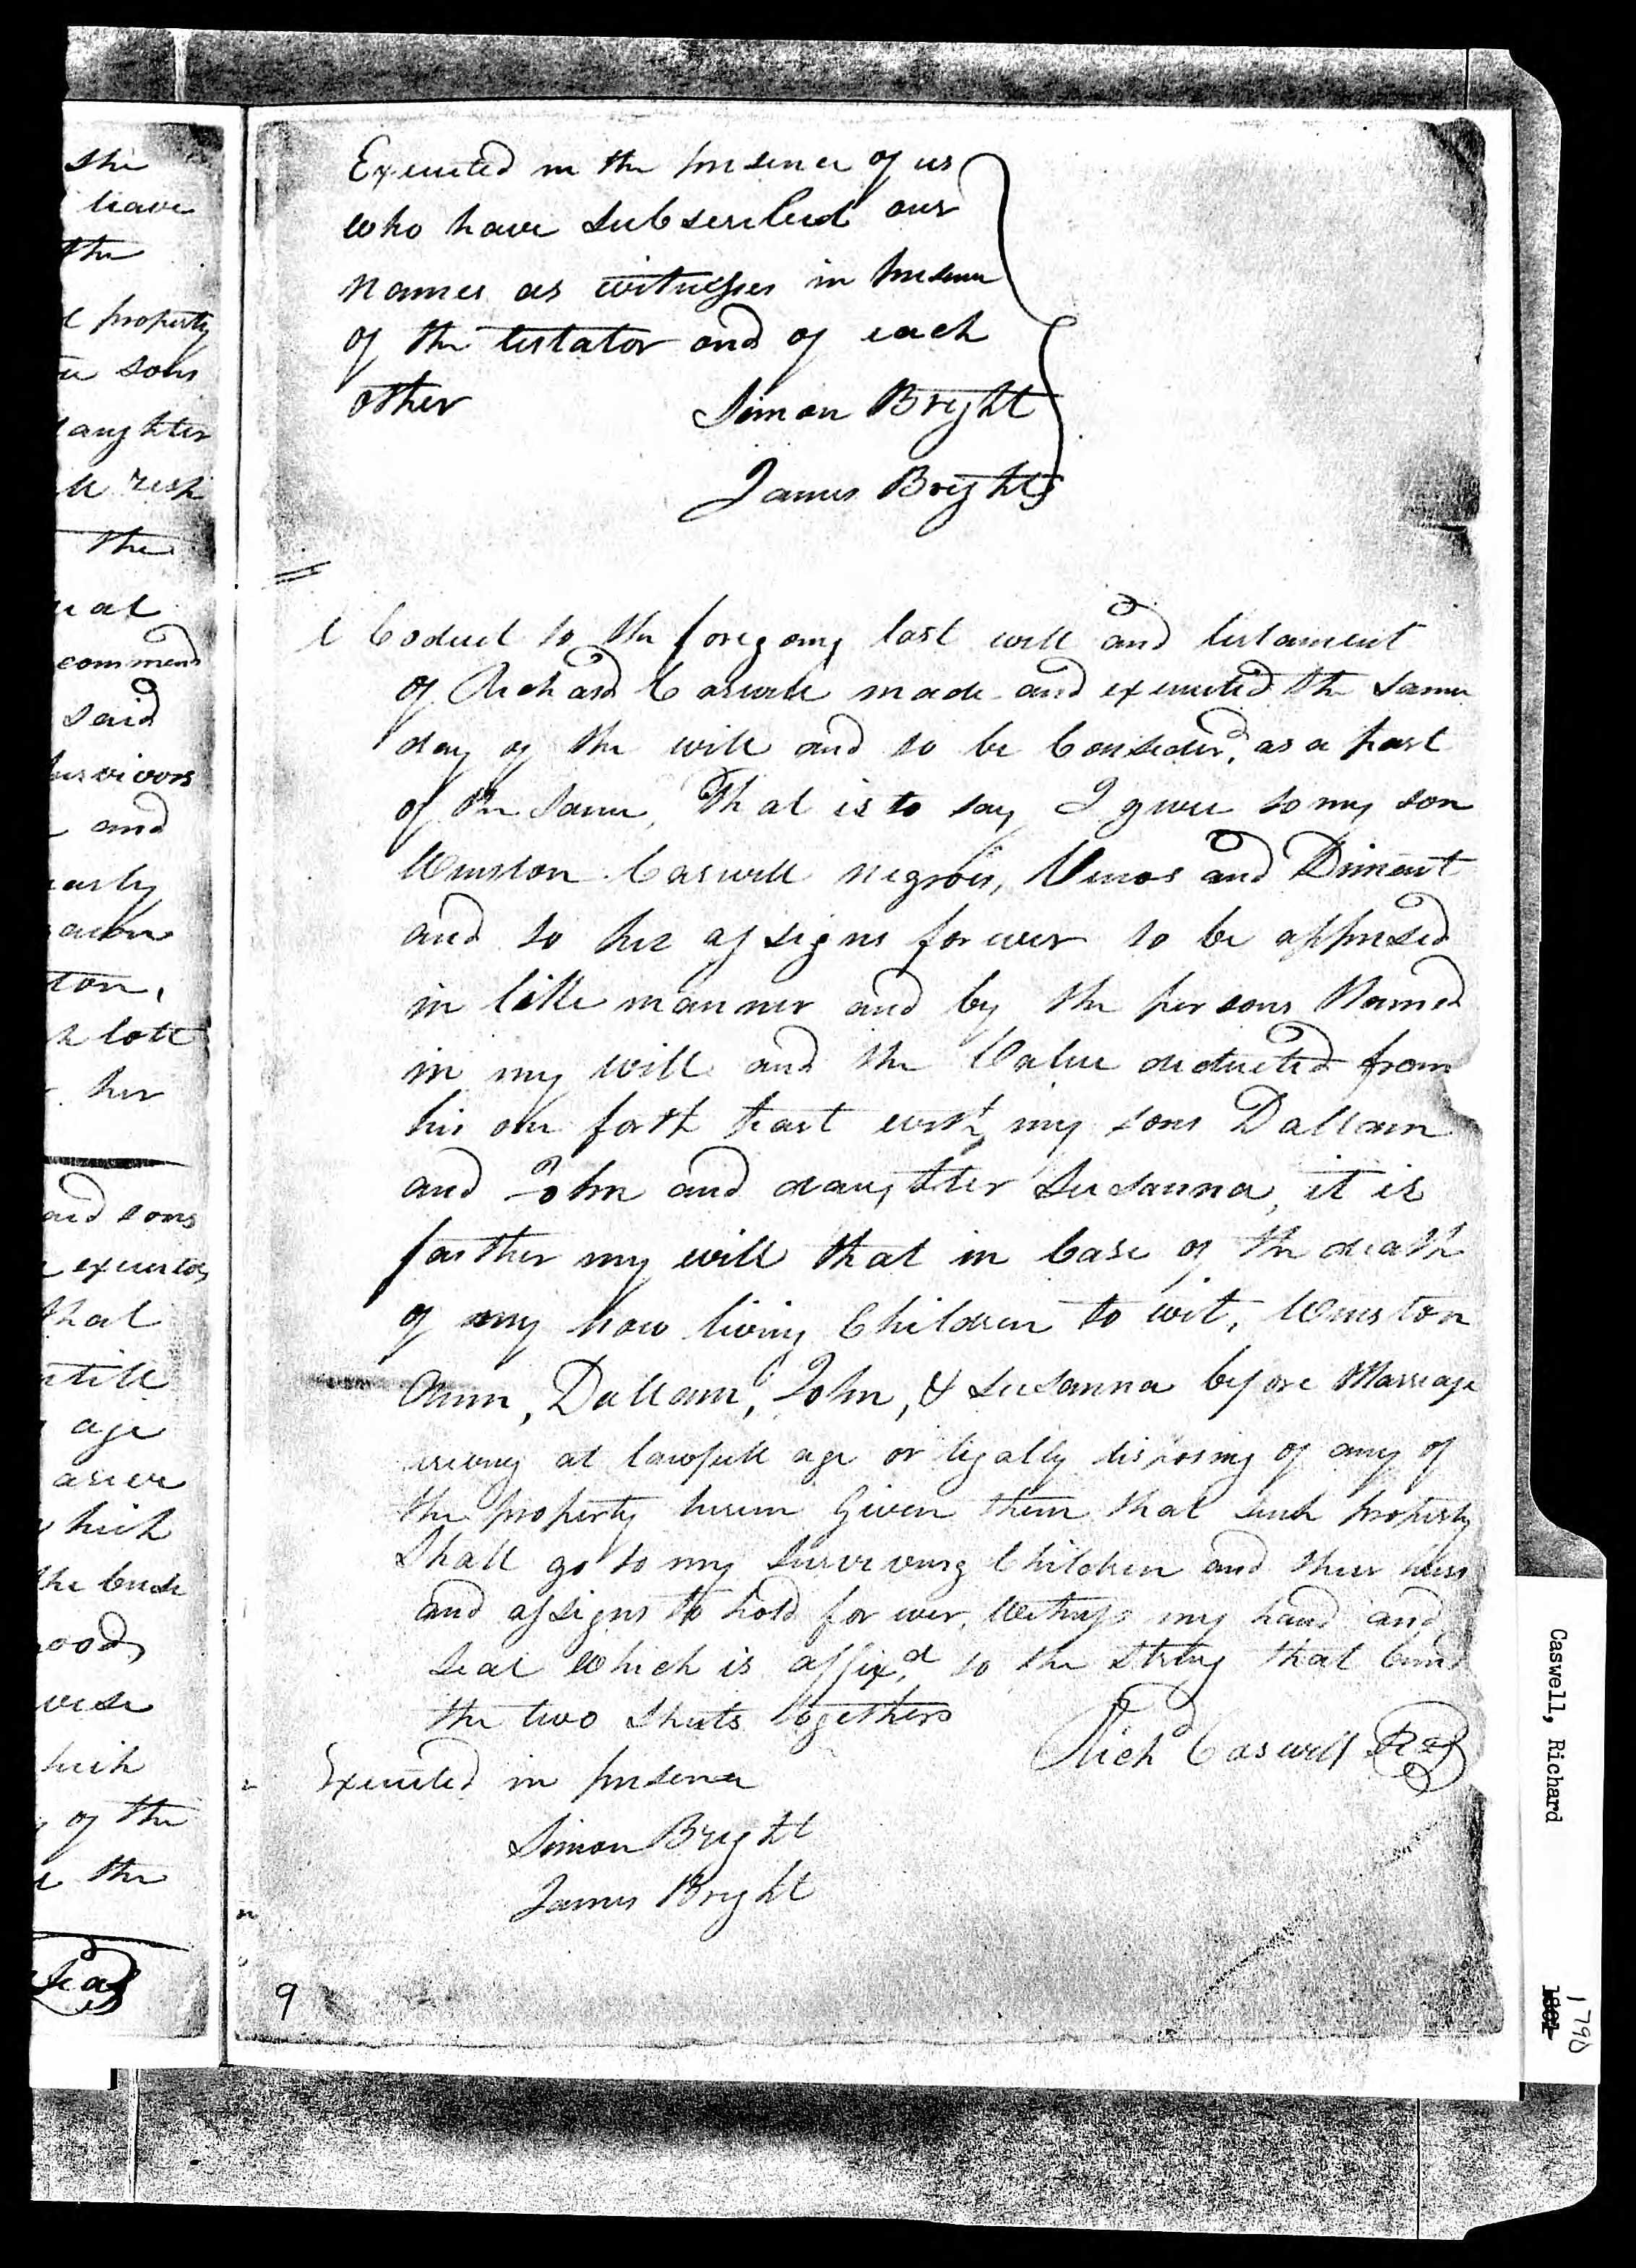 the
leave
the
property
sons
aughter
rest
the
commend
said
survivors
and
ton,
lott
her
sons
executors
that
age
which
the
of the
the
Seal
Executed in the presence of us
who have subscribed our
names as witnesses in presence
of the testator and of each
other Simon Bright
James Bright
A Codicil to the foregoing last will and testament
of Richard Caswell made and executed the same
day of the will and to be Considerd, as a part
of the same, That is to say I give to my son
Winston Caswell negroes, and
and to his assigns for ever to be apprised
in like manner and by the persons Named
in my will and the Value deducted from
his one forth part with my sons Dallam
and John and daughter Susanna, it is
farther my will that in Case of the death
of my now living Children to wit, Winston
Ann, Dallam, John, & Susanna before Marriage
at lawfull age or legally disposing of any of
the property herein Given them that such property
Shall go to my Surviveing Children and their heirs
and assigns to hold for ever, Witness my hand and
seal Which is affixd, to the String that
the two Sheets together
Richd Caswell
Executed in presence
Simon Bright
James Bright
9
Caswell, Richard
1790